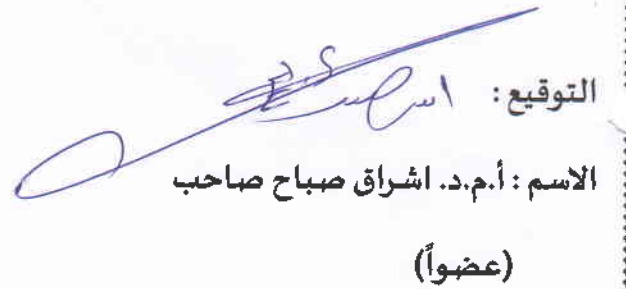 التوقيع :
الاسم : أ.م.د. اشراق صباح صاحب
(عضواً)